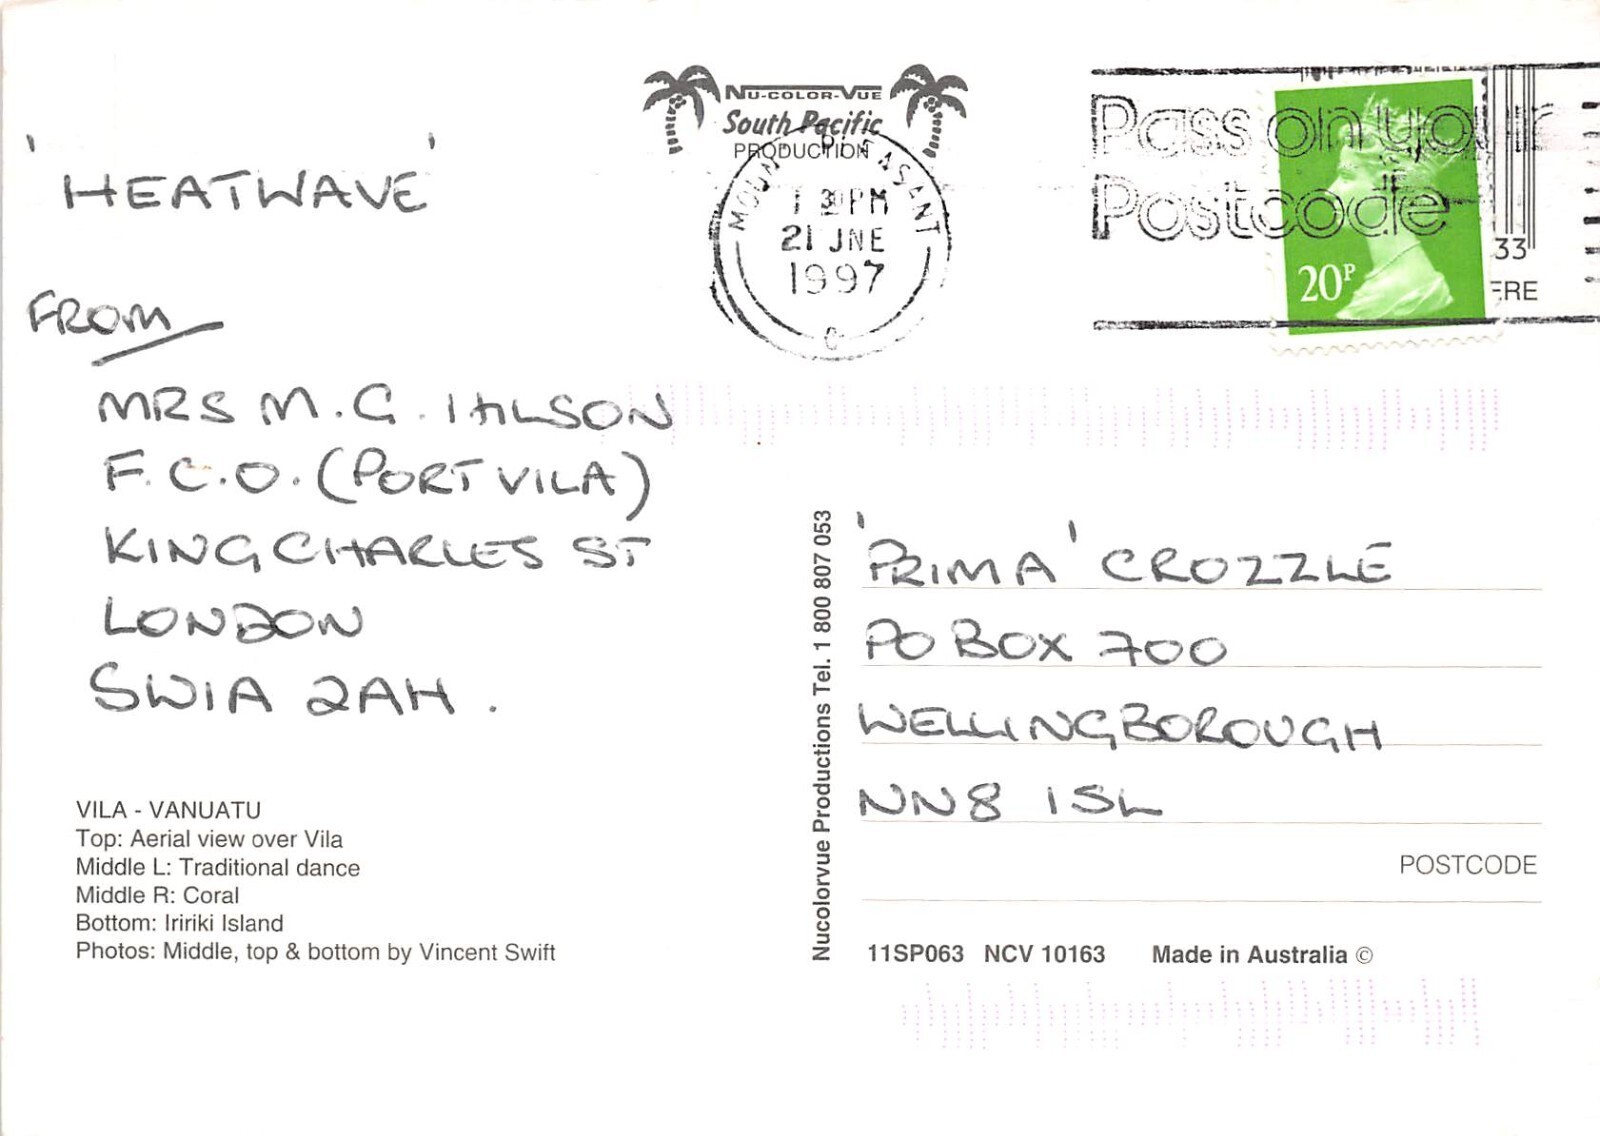 'HEATWAVE'
FROM
MRS M.G. HILSON
F.C.O. (PORT VILA)
KING CHARLES ST
LONDON
SW1A 2AH.
VILA - VANUATU
Top: Aerial view over Vila
Middle L: Traditional dance
Middle R: Coral
Bottom: Iririki Island
Photos: Middle, top & bottom by Vincent Swift
NU-COLOR-VUE
South Pacific
PRODUCTION
MOUNT PLEASANT
1 30 PM
21 JNE
1997
C
Pass on your
Postcode
20P
33
ERE
Nucolorvue Productions Tel. 1 800 807 053
'PRIMA' CROZZLE
PO BOX 700
WELLINGBOROUGH
NN8 1SL
POSTCODE
11SP063 NCV 10163 Made in Australia ©